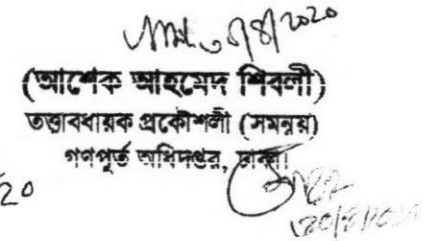 ৩/৪/২০২০
(আশেক আহমেদ শিবলী)
তত্ত্বাবধায়ক প্রকৌশলী (সমন্বয়)
গণপূর্ত অধিদপ্তর, ঢাকা।
20